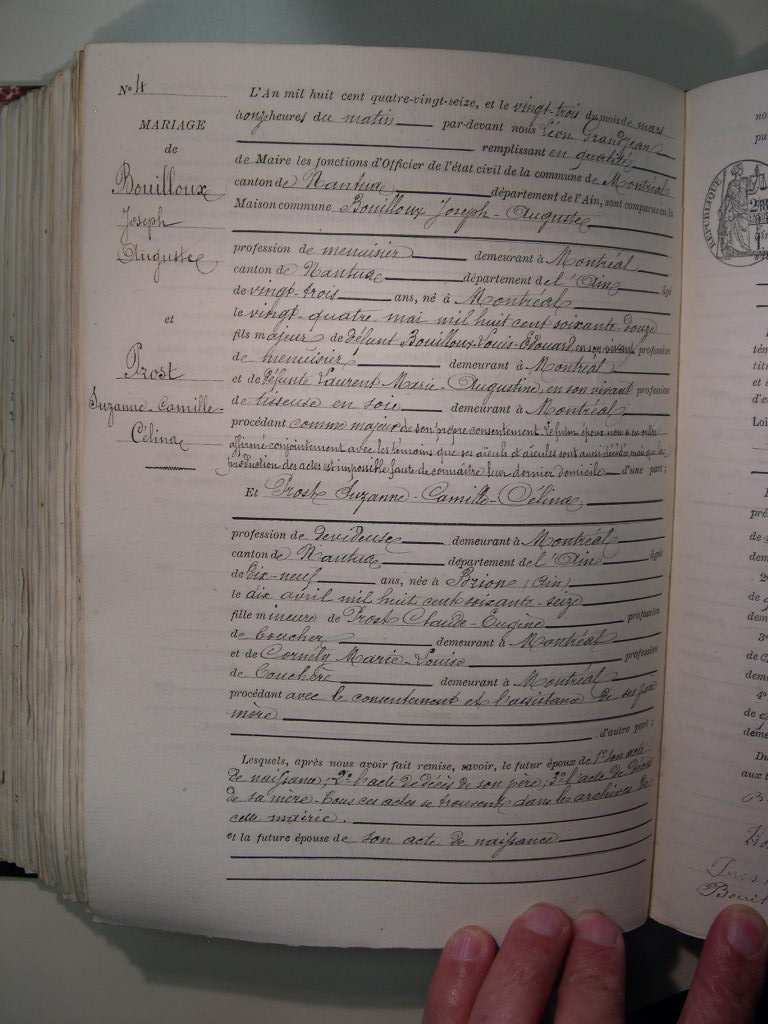 N° 4
MARIAGE
de
Bouilloux
Joseph
Auguste
et
Prost
Suzanne-Camille-
Célina
L'An mil huit cent quatre-vingt-seize, et le vingt-trois du mois de mars
à onze heures du matin par-devant nous Léon Grandjean
remplissant en qualité
de Maire les fonctions d'Officier de l'état civil de la commune de Montréal
canton de Nantua département de l'Ain, sont comparus en la
Maison commune Bouilloux Joseph-Auguste
profession de menuisier demeurant à Montréal
canton de Nantua département de l'Ain âgé
de vingt-trois ans, né à Montréal
le vingt-quatre mai mil huit cent soixante douze
fils majeur de défunt Bouilloux Louis-Edouard en son vivant profession
de menuisier demeurant à Montréal
et de défunte Laurent Marie-Augustine, en son vivant profession
de tisseuse en soie demeurant à Montréal
procédant comme majeur de son propre consentement. Le futur époux nous a en outre
affirmé conjointement avec les témoins que ses aïeuls et aïeules sont aussi décédés mais que la
production des actes est impossible faute de connaître leur dernier domicile d'une part ;
Et Prost Suzanne-Camille-Célina
profession de dévideuse demeurant à Montréal
canton de Nantua département de l'Ain âgée
de dix-neuf ans, née à Brion (Ain)
le dix avril mil huit cent soixante-seize
fille mineure de Prost Claude-Eugène profession
de boucher demeurant à Montréal
et de Cornély Marie-Louise profession
de bouchère demeurant à Montréal
procédant avec le consentement et l'assistance de ses père
mère
d'autre part ;
Lesquels, après nous avoir fait remise, savoir, le futur époux de 1° son acte
de naissance, 2° l'acte de décès de son père, 3° l'acte de décès
de sa mère. Tous ces actes se trouvent dans les archives de
cette mairie.
et la future épouse de son acte de naissance
RÉPUBLIQUE